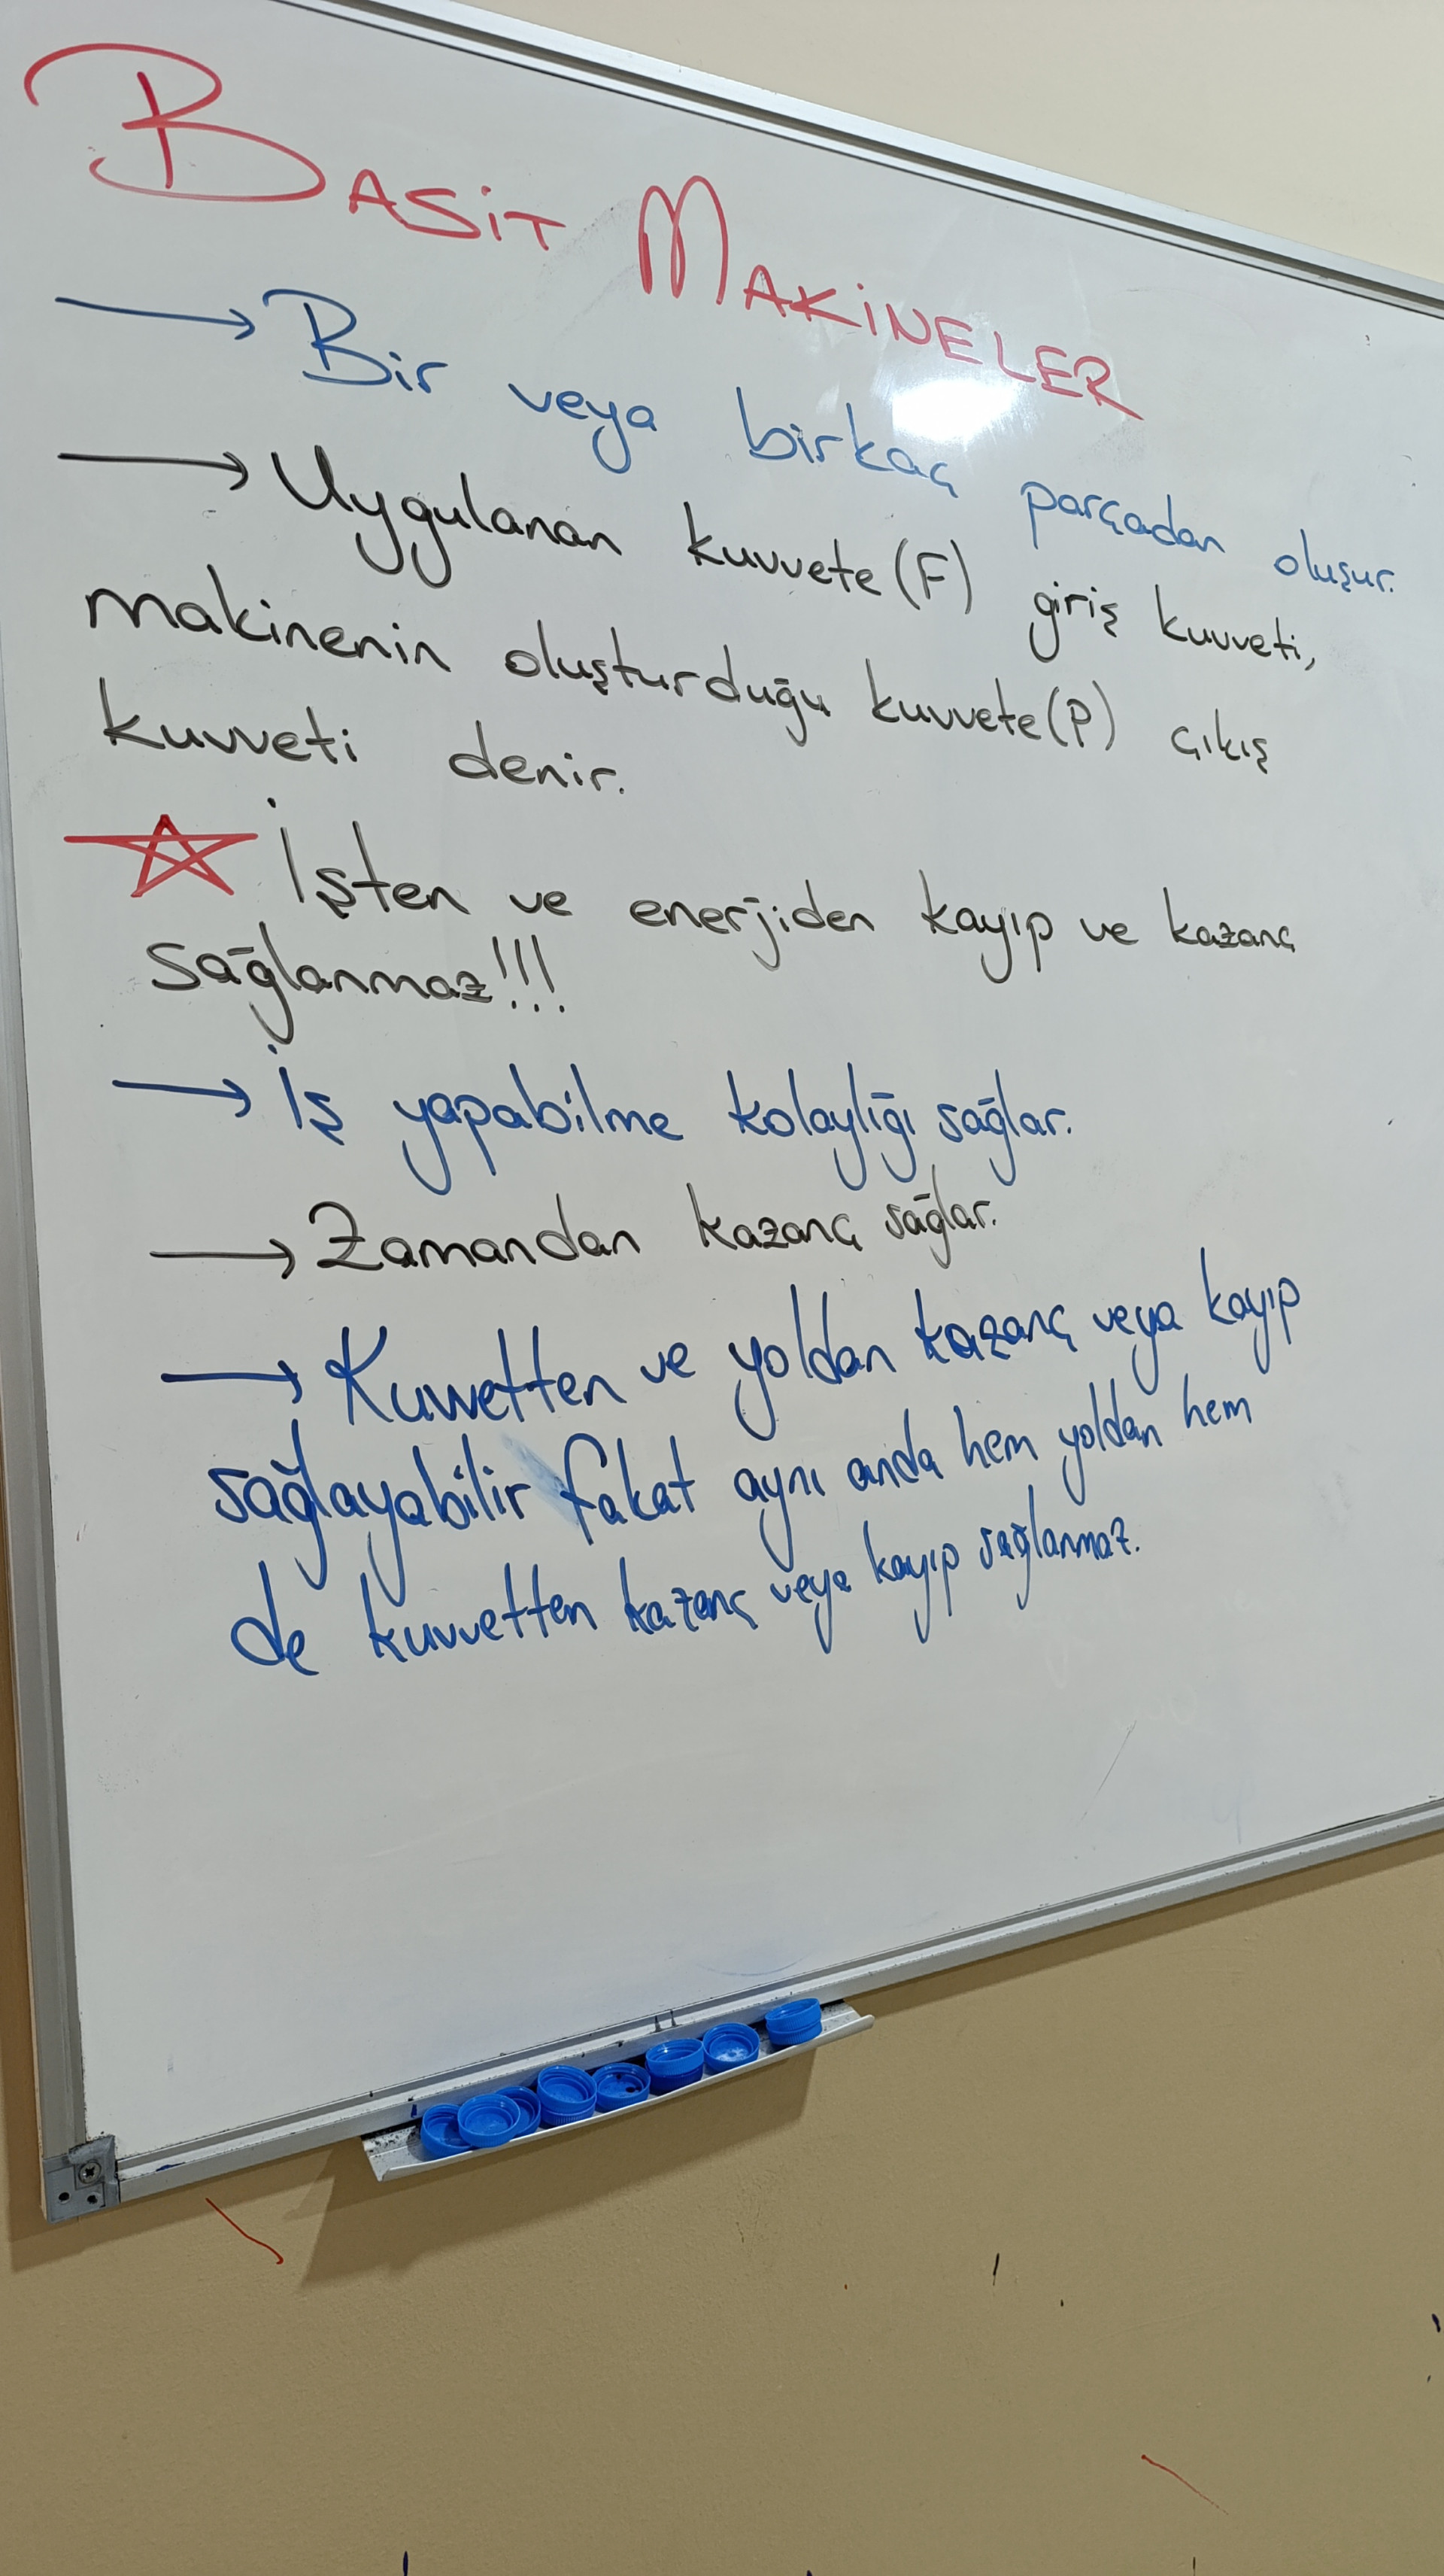 BASİT MAKİNELER
→ Bir veya birkaç parçadan oluşur.
→ Uygulanan kuvvete (F) giriş kuvveti,
makinenin oluşturduğu kuvvete (P) çıkış
kuvveti denir.
☆ İşten ve enerjiden kayıp ve kazanç
sağlanmaz!!!
→ İş yapabilme kolaylığı sağlar.
→ Zamandan kazanç sağlar.
→ Kuvvetten ve yoldan kazanç veya kayıp
sağlayabilir fakat aynı anda hem yoldan hem
de kuvvetten kazanç veya kayıp sağlanmaz.